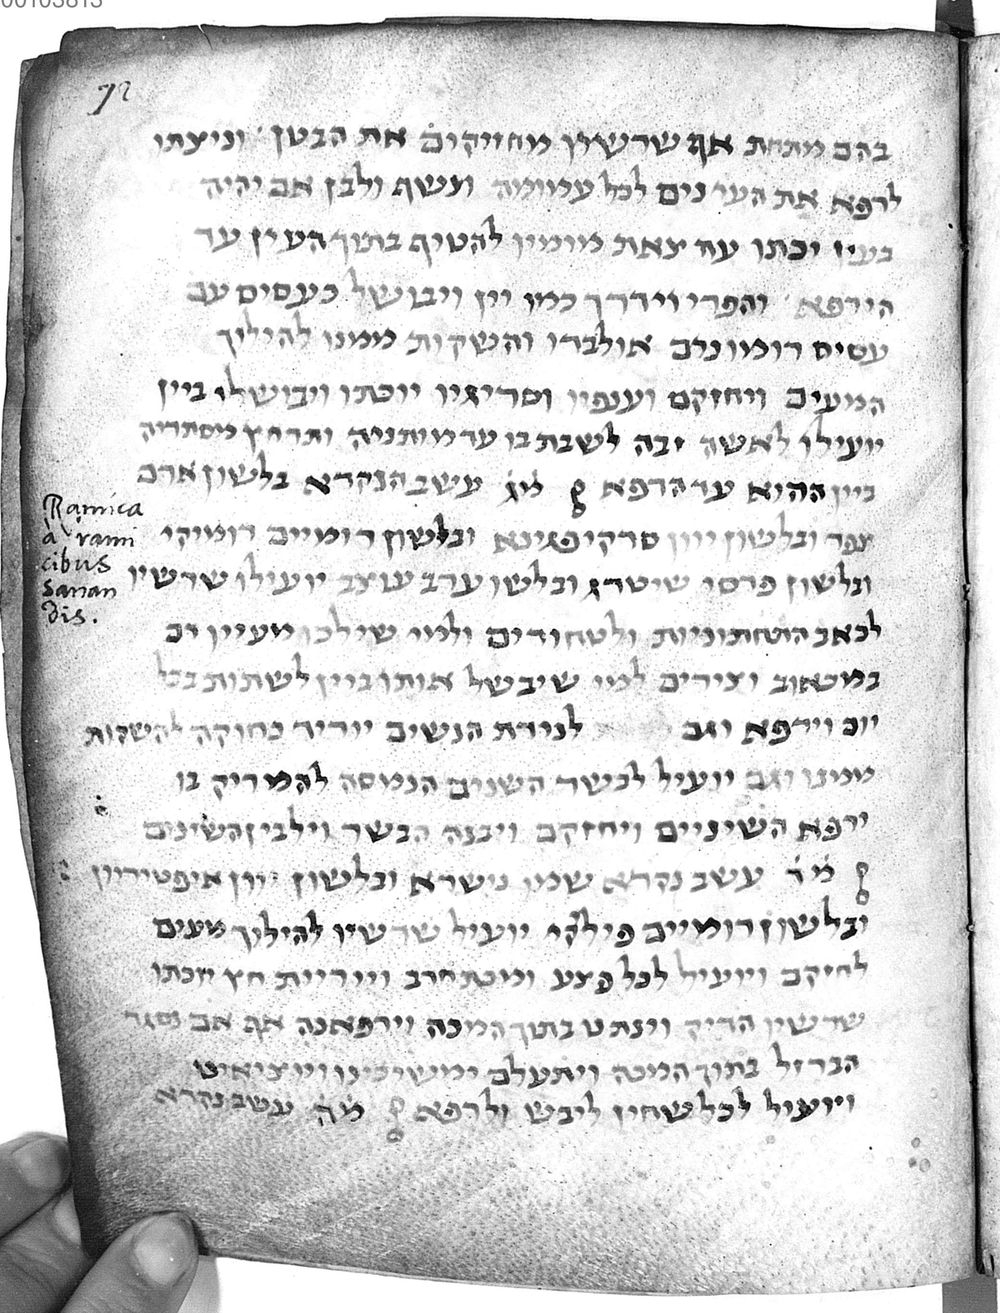 00103813
72
בהם מתחת אף שרשיו מחזיקים את הבטן וניצתו
לרפא את העינים לכל ונשף ולבן אם יהיה
בעין יכתו עד צאת מימיו להטיף בתוך העין עד
הירפא והפרי וידרך כמו יין ויבושל כעסיס עם
עסיס רומו נרם או לבדו והשקות ממנו להיליך
המעים ויחזקם וענפיו וסריגיו יוכתו ויבושלו ביין
יועילו לאשה זבה לשבת בו עד מותניה ותרחץ מסתריה
ביין ההוא עד הרפא מ״ג עשב הנקרא בלשון ארם
צפר ובלשון יוון ובלשון רומיים רומיקי
ובלשון פרסי שיטרג ובלשון ערב עוצב יועילו שרשיו
לכאב התחתוניות ולטחורים ולמי שילכו מעיין דם
במכאוב וצירים למי שיבשל אותו ביין לשתות בכל
יום וירפא וגם לנידת הנשים יוריד בחוקה להשקות
ממנו וגם יועיל לבשר השנים הנמסה להמריק בו
ירפא השיניים ויחזקם ויבנה הבשר וילבין השינים
מ״ד עשב נקרא שמו גישרא ובלשון יוון איפטיריון
ובלשון רומיים פילקי יועיל שרשיו להילוך מעים
לחזקם ויועיל לכל פצע ומכת חרב ויריית חץ יוכתו
שרשיו הדיק וינתנו בתוך המכה וירפאנה אף אם נסגר
הברזל בתוך המכה ויתעלם ימשיכינו ויוציאינו
ויועיל לכל שחין ליבש ולרפא מ״ה עשב נקרא
Ramica
à rami
cibus
sanan
dis.